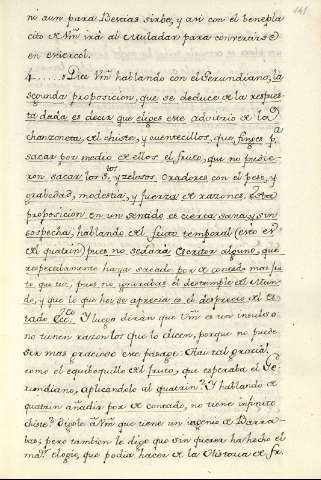 141
ni aun para Bestias sirbe, y asi con el benepla
cito de Vm irá al Muladar para convertirse
en estiercol.
4......Dice Vm hablando con el Gerundiano, la
segunda proposicion, que se deduce de la respues
ta dada es decir que eliges este advitrio de la
chanzoneta, el chiste, y cuentecillos, que finges pa
sacar por medio de ellos el fruto, que no pudie-
ron sacar los Stos y zelosos Oradores con el peso, y
grabedad, modestia, y fuerza de razones. Esta
proposicion en un sentido es cierta, sana, y sin
sospecha, hablando del fruto temporal (esto es
el quatrin) pues no se dará Orador alguno, que
respectivamente haya sacado por de contado mas fru
to que tu; pues no ignorabas el destemple del Mun-
do, y que lo que hoy se aprecia es el desprecio del es-
tado Ecco. Y luego dirán que Vm es un insulso:
no tienen razon los que lo dicen, porque no puede
ser mas gracioso este pasage. Hai tal gracia!
como el equiboquillo del fruto, que esperaba el Ge-
rundiano, aplicandolo al quatrin? Y hablando de
quatrin añadir por de contado, no tiene infinito
chiste? Digole á Vm que tiene un ingenio de Barra-
bas; pero tambien le digo que sin querer ha hecho el
mayor elogio, que podia hacer de la Historia de fr.